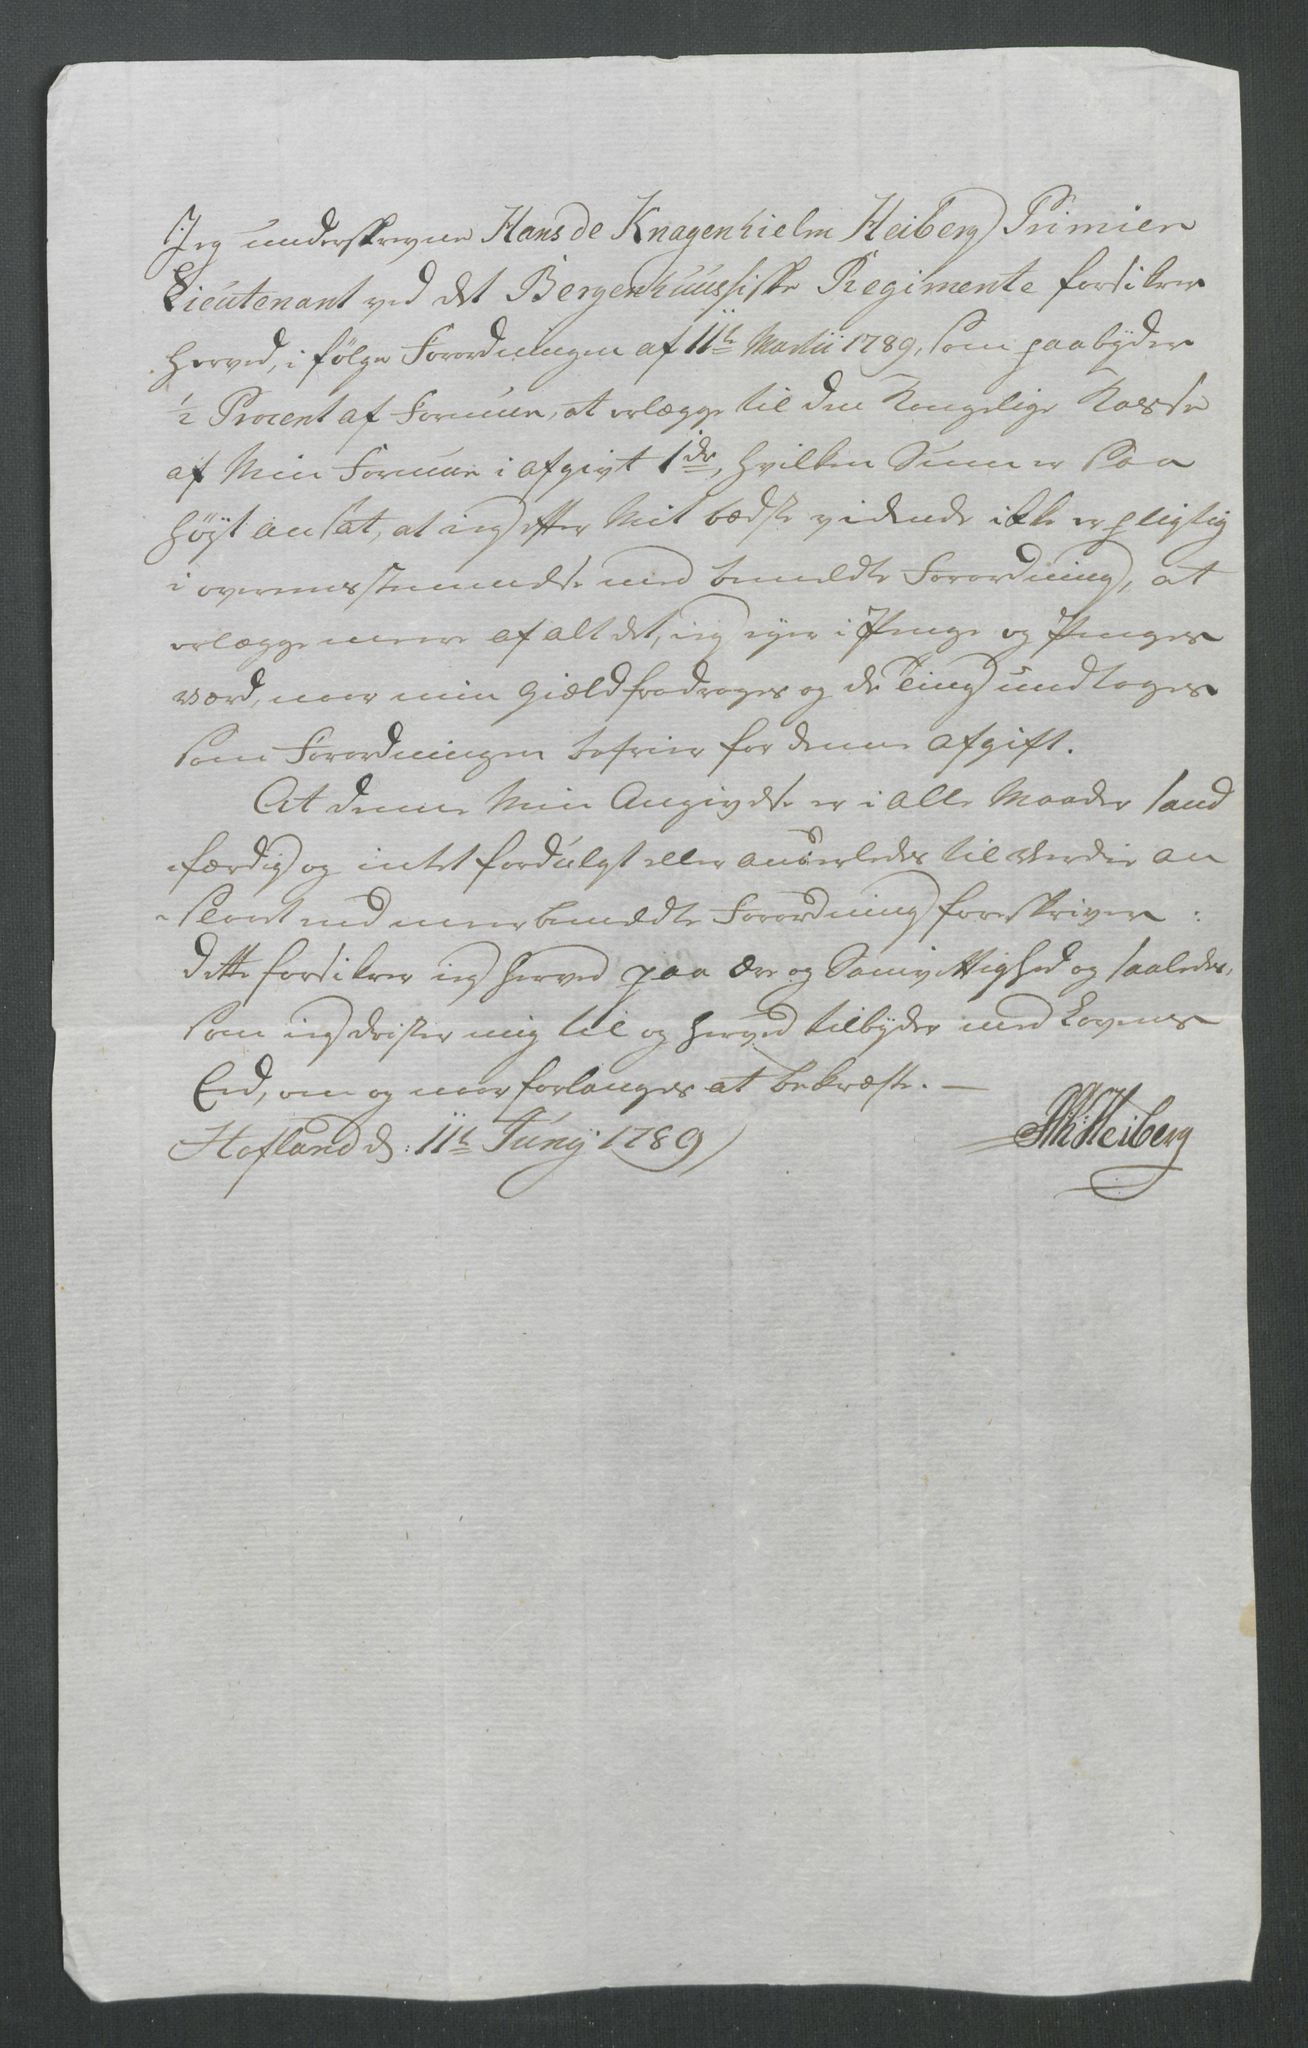 Jeg underskrevne Hans de Knagenhielm Heiberg Primier
Lieutenant ved det Bergenhuussiske Regimente forsikrer
herved, i følge Forordningen af 11te Martii 1789, som paabyder
1/2 Procent af Formue, at erlægge til den Kongelige Kasse
af Min Formue i afgivt 1 dr, hvilken Sum er saa
høyt ansat, at ieg efter Mit bædste vidende ikke er pligtig
i overensstemmelse med bemeldte Forordning, at
erlægge meere af alt det, ieg eyer i Penge og Penges
værd, naar min Gield fradrages og de Ting undtages
som Forordningen befrier for denne Afgift.
At denne Min Angivelse er i alle Maader sand
færdig og intet fordulgt eller anderledes til Verdie an
slaaet end meerbemeldte Forordning foreskriver:
dette forsikrer ieg herved paa Ære og Samvittighed og saaledes,
som ieg drister mig til og herved tilbyder med Lovens
Eed, om og naar forlanges at bekræfte. —
Hofland d: 11te Junÿ 1789
Heiberg